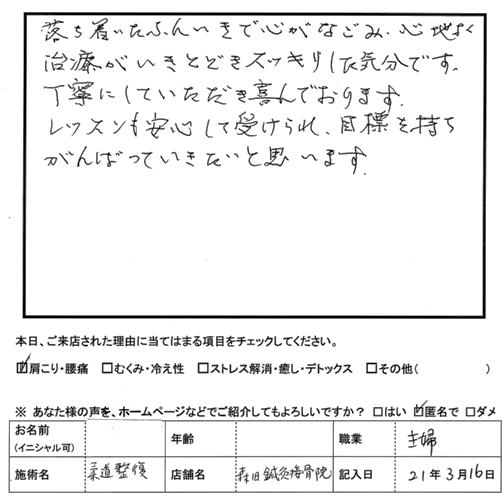 落ち着いたふんいきで心がなごみ、心地よく
治療がいきとどきスッキリした気分です。
丁寧にしていただき喜んでおります。
レッスンも安心して受けられ、目標を持ち
がんばっていきたいと思います。
本日、ご来店された理由に当てはまる項目をチェックしてください。
☑肩こり・腰痛 □むくみ・冷え性 □ストレス解消・癒し・デトックス □その他( )
※ あなた様の声を、ホームページなどでご紹介してもよろしいですか？ □はい ☑匿名で □ダメ
お名前 (イニシャル可) 年齢 職業 主婦
施術名 柔道整復 店舗名 森田鍼灸接骨院 記入日 21年3月16日